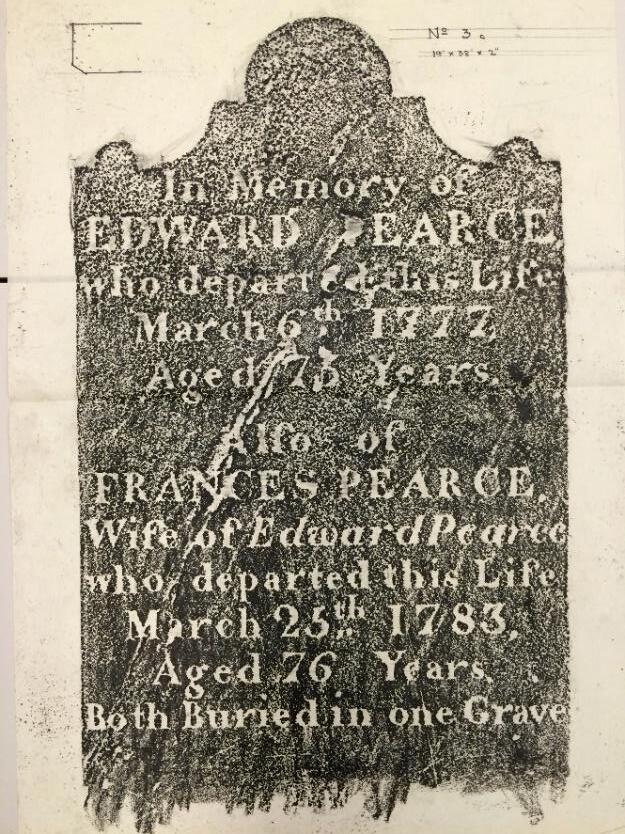 Nº 3.
19" x 38" x 2"
In Memory of
EDWARD PEARCE,
who departed this Life
March 6th 1777
Aged 75 Years.
Alſo of
FRANCES PEARCE,
Wife of Edward Pearce
who departed this Life
March 25th 1783,
Aged 76 Years.
Both Buried in one Grave